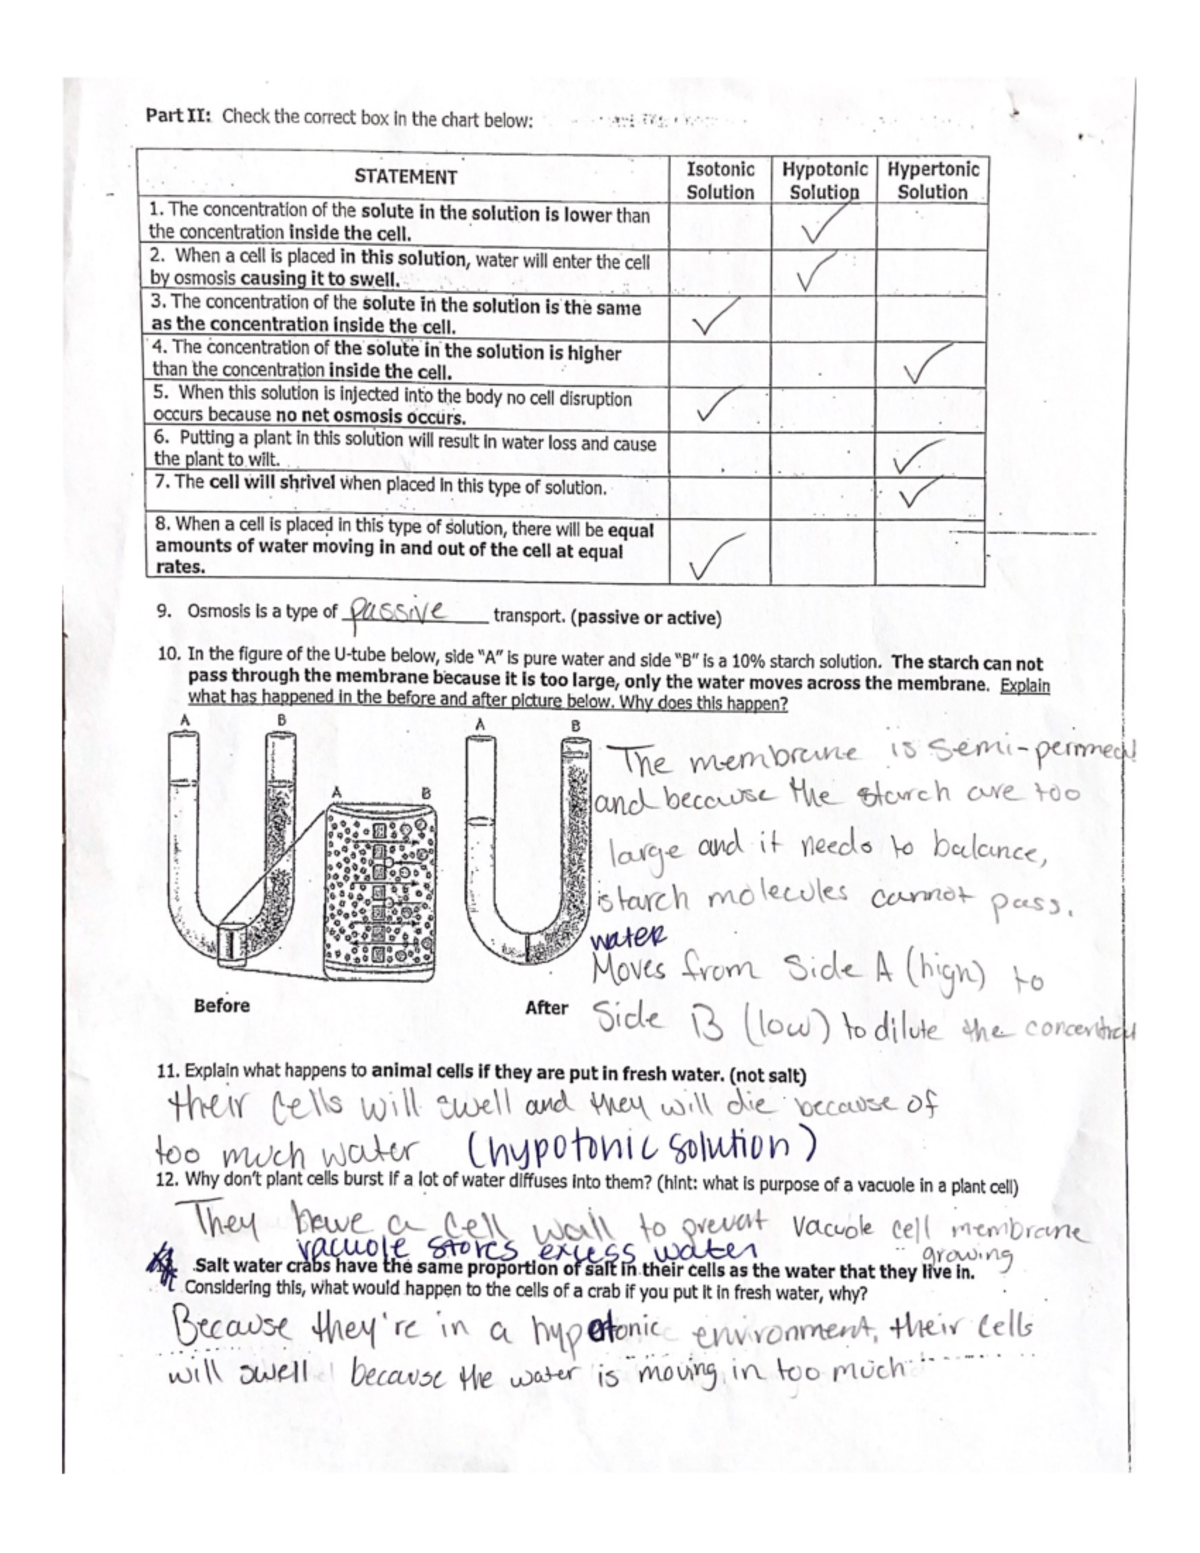 Part II: Check the correct box in the chart below:
STATEMENT
Isotonic Solution
Hypotonic Solution
Hypertonic Solution
1. The concentration of the solute in the solution is lower than
the concentration inside the cell.
2. When a cell is placed in this solution, water will enter the cell
by osmosis causing it to swell.
3. The concentration of the solute in the solution is the same
as the concentration inside the cell.
4. The concentration of the solute in the solution is higher
than the concentration inside the cell.
5. When this solution is injected into the body no cell disruption
occurs because no net osmosis occurs.
6. Putting a plant in this solution will result in water loss and cause
the plant to wilt.
7. The cell will shrivel when placed in this type of solution.
8. When a cell is placed in this type of solution, there will be equal
amounts of water moving in and out of the cell at equal
rates.
9. Osmosis is a type of passive transport. (passive or active)
10. In the figure of the U-tube below, side "A" is pure water and side "B" is a 10% starch solution. The starch can not
pass through the membrane because it is too large, only the water moves across the membrane. Explain
what has happened in the before and after picture below. Why does this happen?
A B
A B
A B
Before
After
The membrane is semi-permeal
and because the starch are too
large and it needs to balance,
starch molecules cannot pass.
water
Moves from Side A (high) to
Side B (low) to dilute the concentrat
11. Explain what happens to animal cells if they are put in fresh water. (not salt)
their cells will swell and they will die because of
too much water (hypotonic solution)
12. Why don't plant cells burst if a lot of water diffuses into them? (hint: what is purpose of a vacuole in a plant cell)
They have a cell wall to prevat vacuole cell membrane
growing
vacuole stores excess water
Salt water crabs have the same proportion of salt in their cells as the water that they live in.
Considering this, what would happen to the cells of a crab if you put it in fresh water, why?
Because they're in a hypotonic environment, their cells
will swell because the water is moving in too much